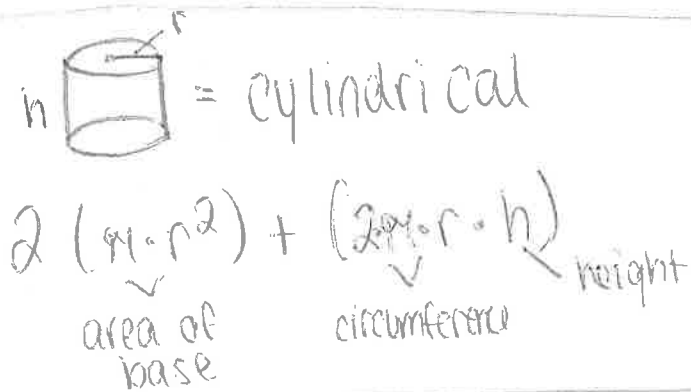 r
h = cylindrical
2 (π·r²) + (2π·r·h)
area of base
circumference
height